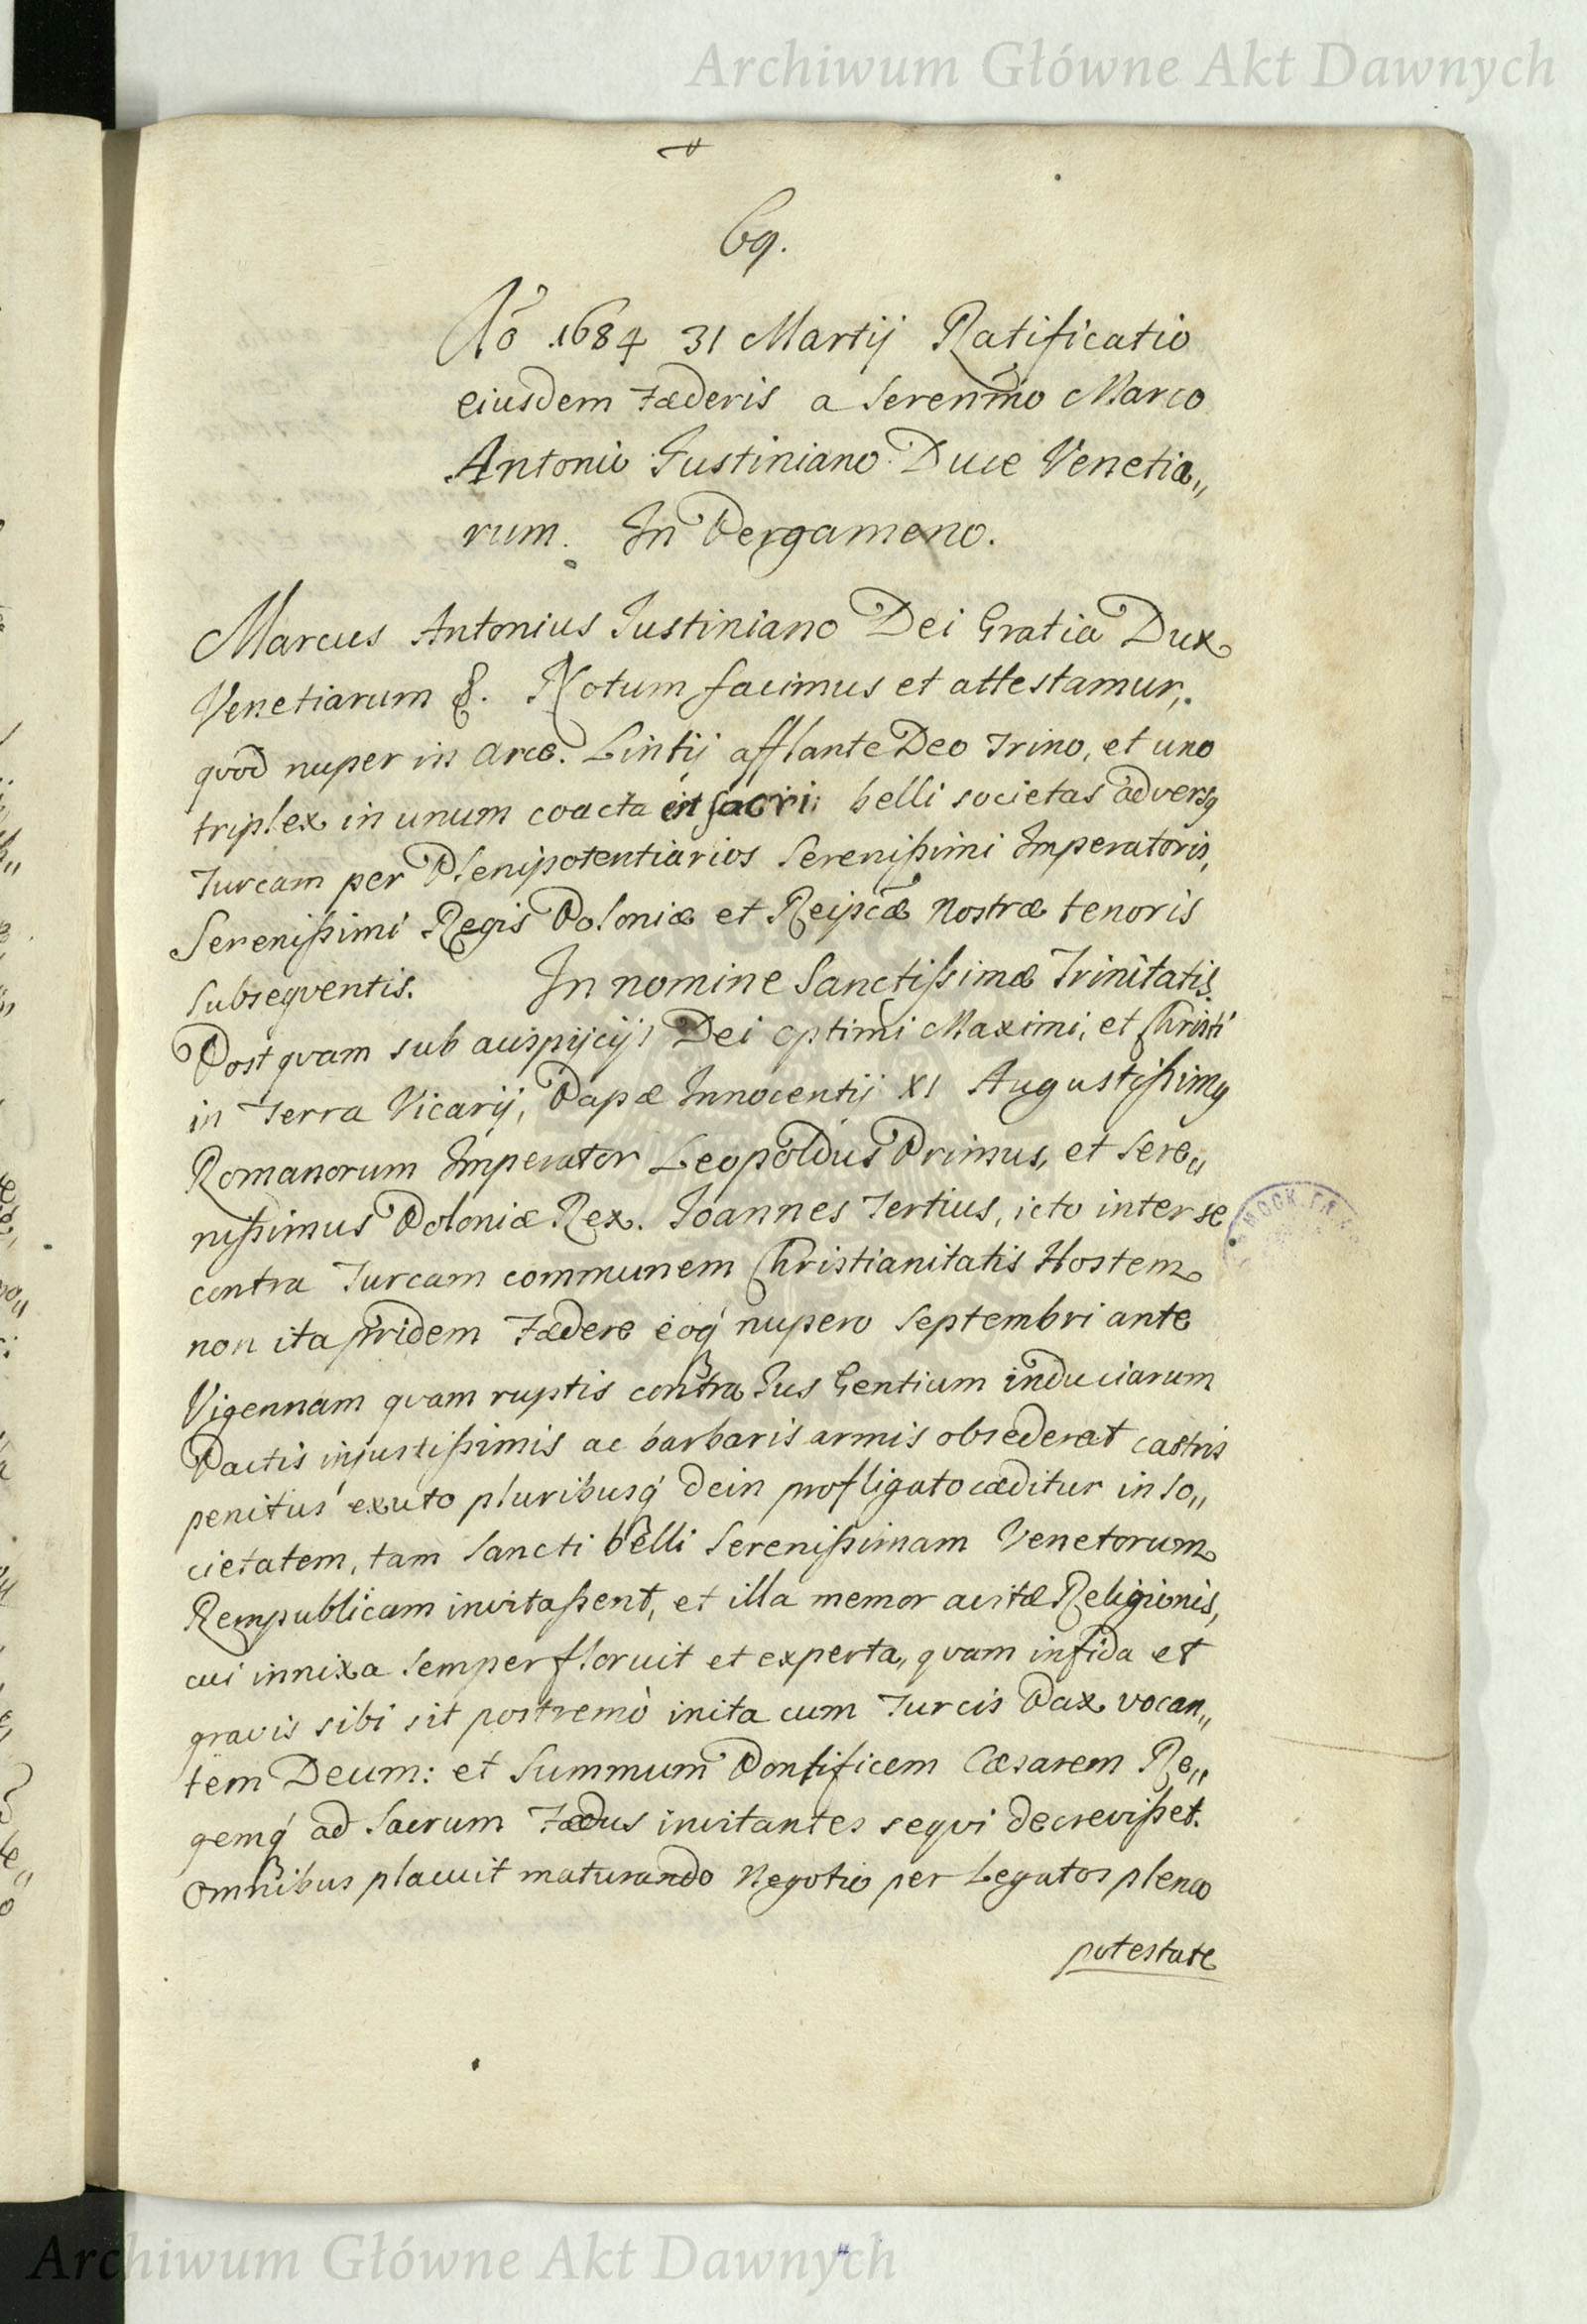 Archiwum Główne Akt Dawnych
69.
Aõ 1684 31 Martij Ratificatio
eiusdem Fæderis a Serenm̃o Marco
Antonio Justiniano Duce Venetia„
rum. In Pergameno.
Marcus Antonius Justiniano Dei Gratia Dux
Venetiarum &. Notum facimus et attestamur,
quod nuper in arce Lintij afflante Deo Trino, et uno
triplex in unum coacta est sacri belli societas adversq
Turcam per Plenipotentiarios Serenißimi Imperatoris,
Serenißimi Regis Poloniæ et Reipcæ̃ Nostræ tenoris
subseqventis. In nomine Sanctißimæ Trinitatis.
Post qvam sub auspijcijs Dei optimi Maximi, et Christi
in Terra Vicarij, Papæ Innocentij XI Augustißimq
Romanorum Imperator Leopoldus Primus, et Sere„
nißimus Poloniæ Rex. Joannes Tertius, icto inter se
contra Turcam communem Christianitatis Hostem
non ita pridem Fædere eoq́ nupero Septembri ante
Vigennam qvam ruptis contra Jus Gentium induciarum
Pactis injustißimis ac barbaris armis obsederat castris
penitus exuto pluribusq́ dein profligato cæditur in so„
cietatem, tam Sancti belli Serenißimam Venetorum
Rempublicam invitaßent, et illa memor avitæ Religionis,
cui innixa semper floruit et experta, qvam infida et
gravis sibi sit postremò inita cum Turcis Pax vocan„
tem Deum: et Summum Pontificem Cæsarem Re„
gemq́ ad Sacrum Fædus invitantes seqvi decrevißet.
Omnibus placuit maturando Negotio per Legatos pleno
potestate
Archiwum Główne Akt Dawnych